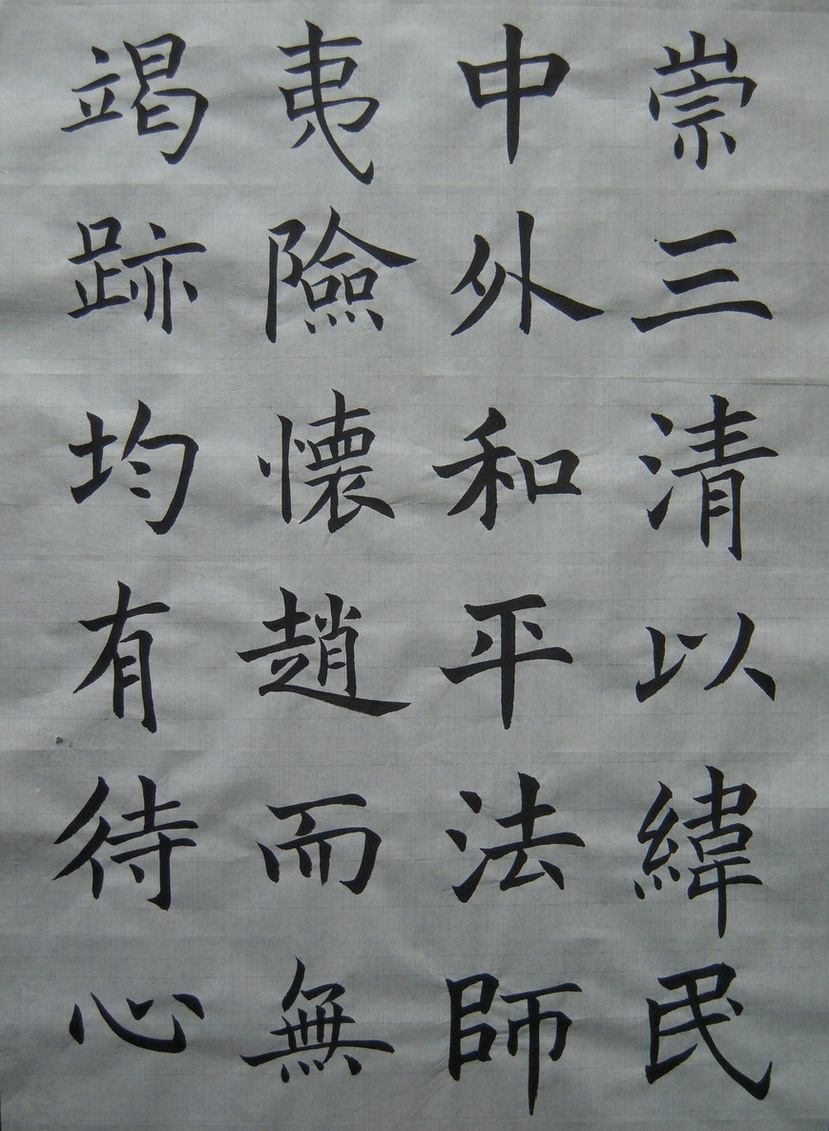 崇三清以緯民
中外和平法師
夷險懷趙而無
竭跡均有待心